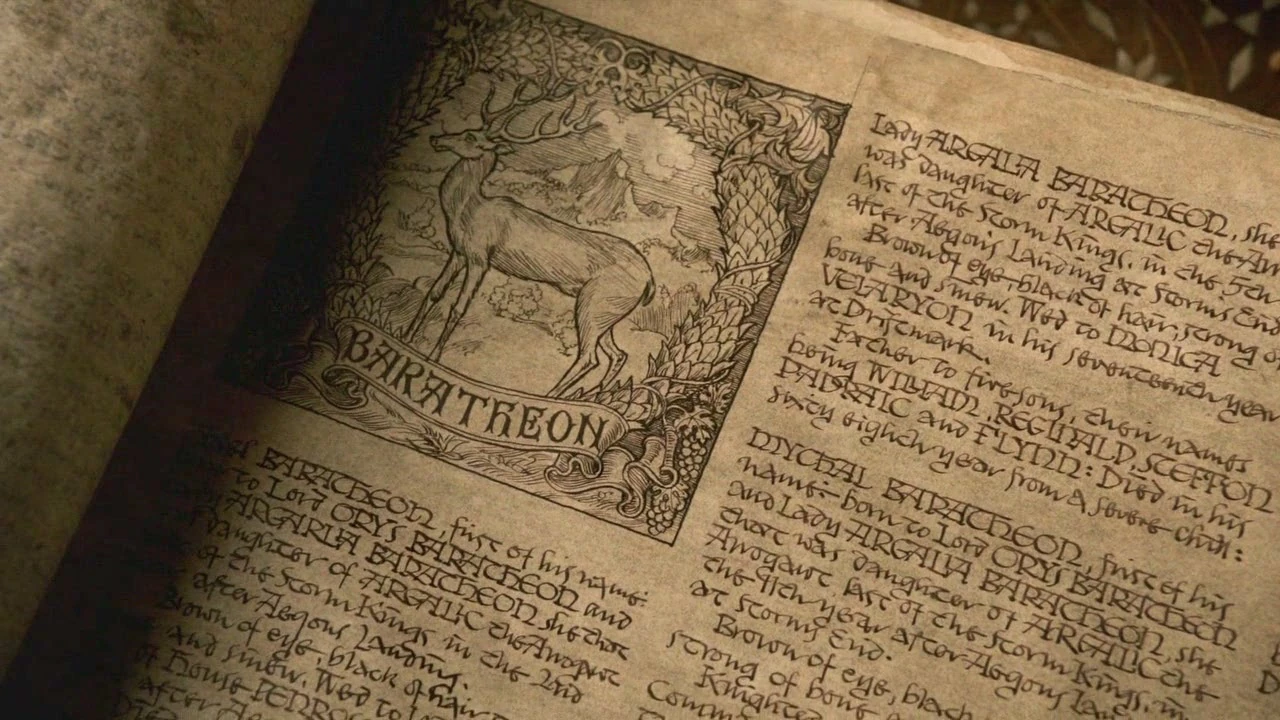 BARATHEON
BARATHEON, first of his name:
to Lord ORYS BARATHEON and
ARGARLIA BARATHEON she that
daughter of ARGALIC the Arrogant
of the Storm Kings, in the 2nd
after Aegons Landing.
Brown of eye, black of hair
and sinew. Wed to
of House PENROSE
after
Lady ARGALIA BARATHEON, she
was daughter of ARGALIC the
last of the Storm Kings, in the 5th
after Aegons Landing at Storms End
Brown of eye black of hair, strong of
bone and sinew. Wed to MONICA
VELARYON in his seventeenth year
at Driftmark.
Father to five sons, their names
being WILLIAM, REGINALD, STEFFON
PADRAIC and FLYNN: Died in his
sixty eighth year from a severe chill:
MYCHAL BARATHEON, first of his
name: born to Lord ORYS BARATHEON
and Lady ARGALIA BARATHEON, she
that was daughter of ARGALIC the
Arrogant, last of the Storm Kings, in
the 9th year after Aegons
at Storms End.
Brown of eye, black
strong of bone
Knighted